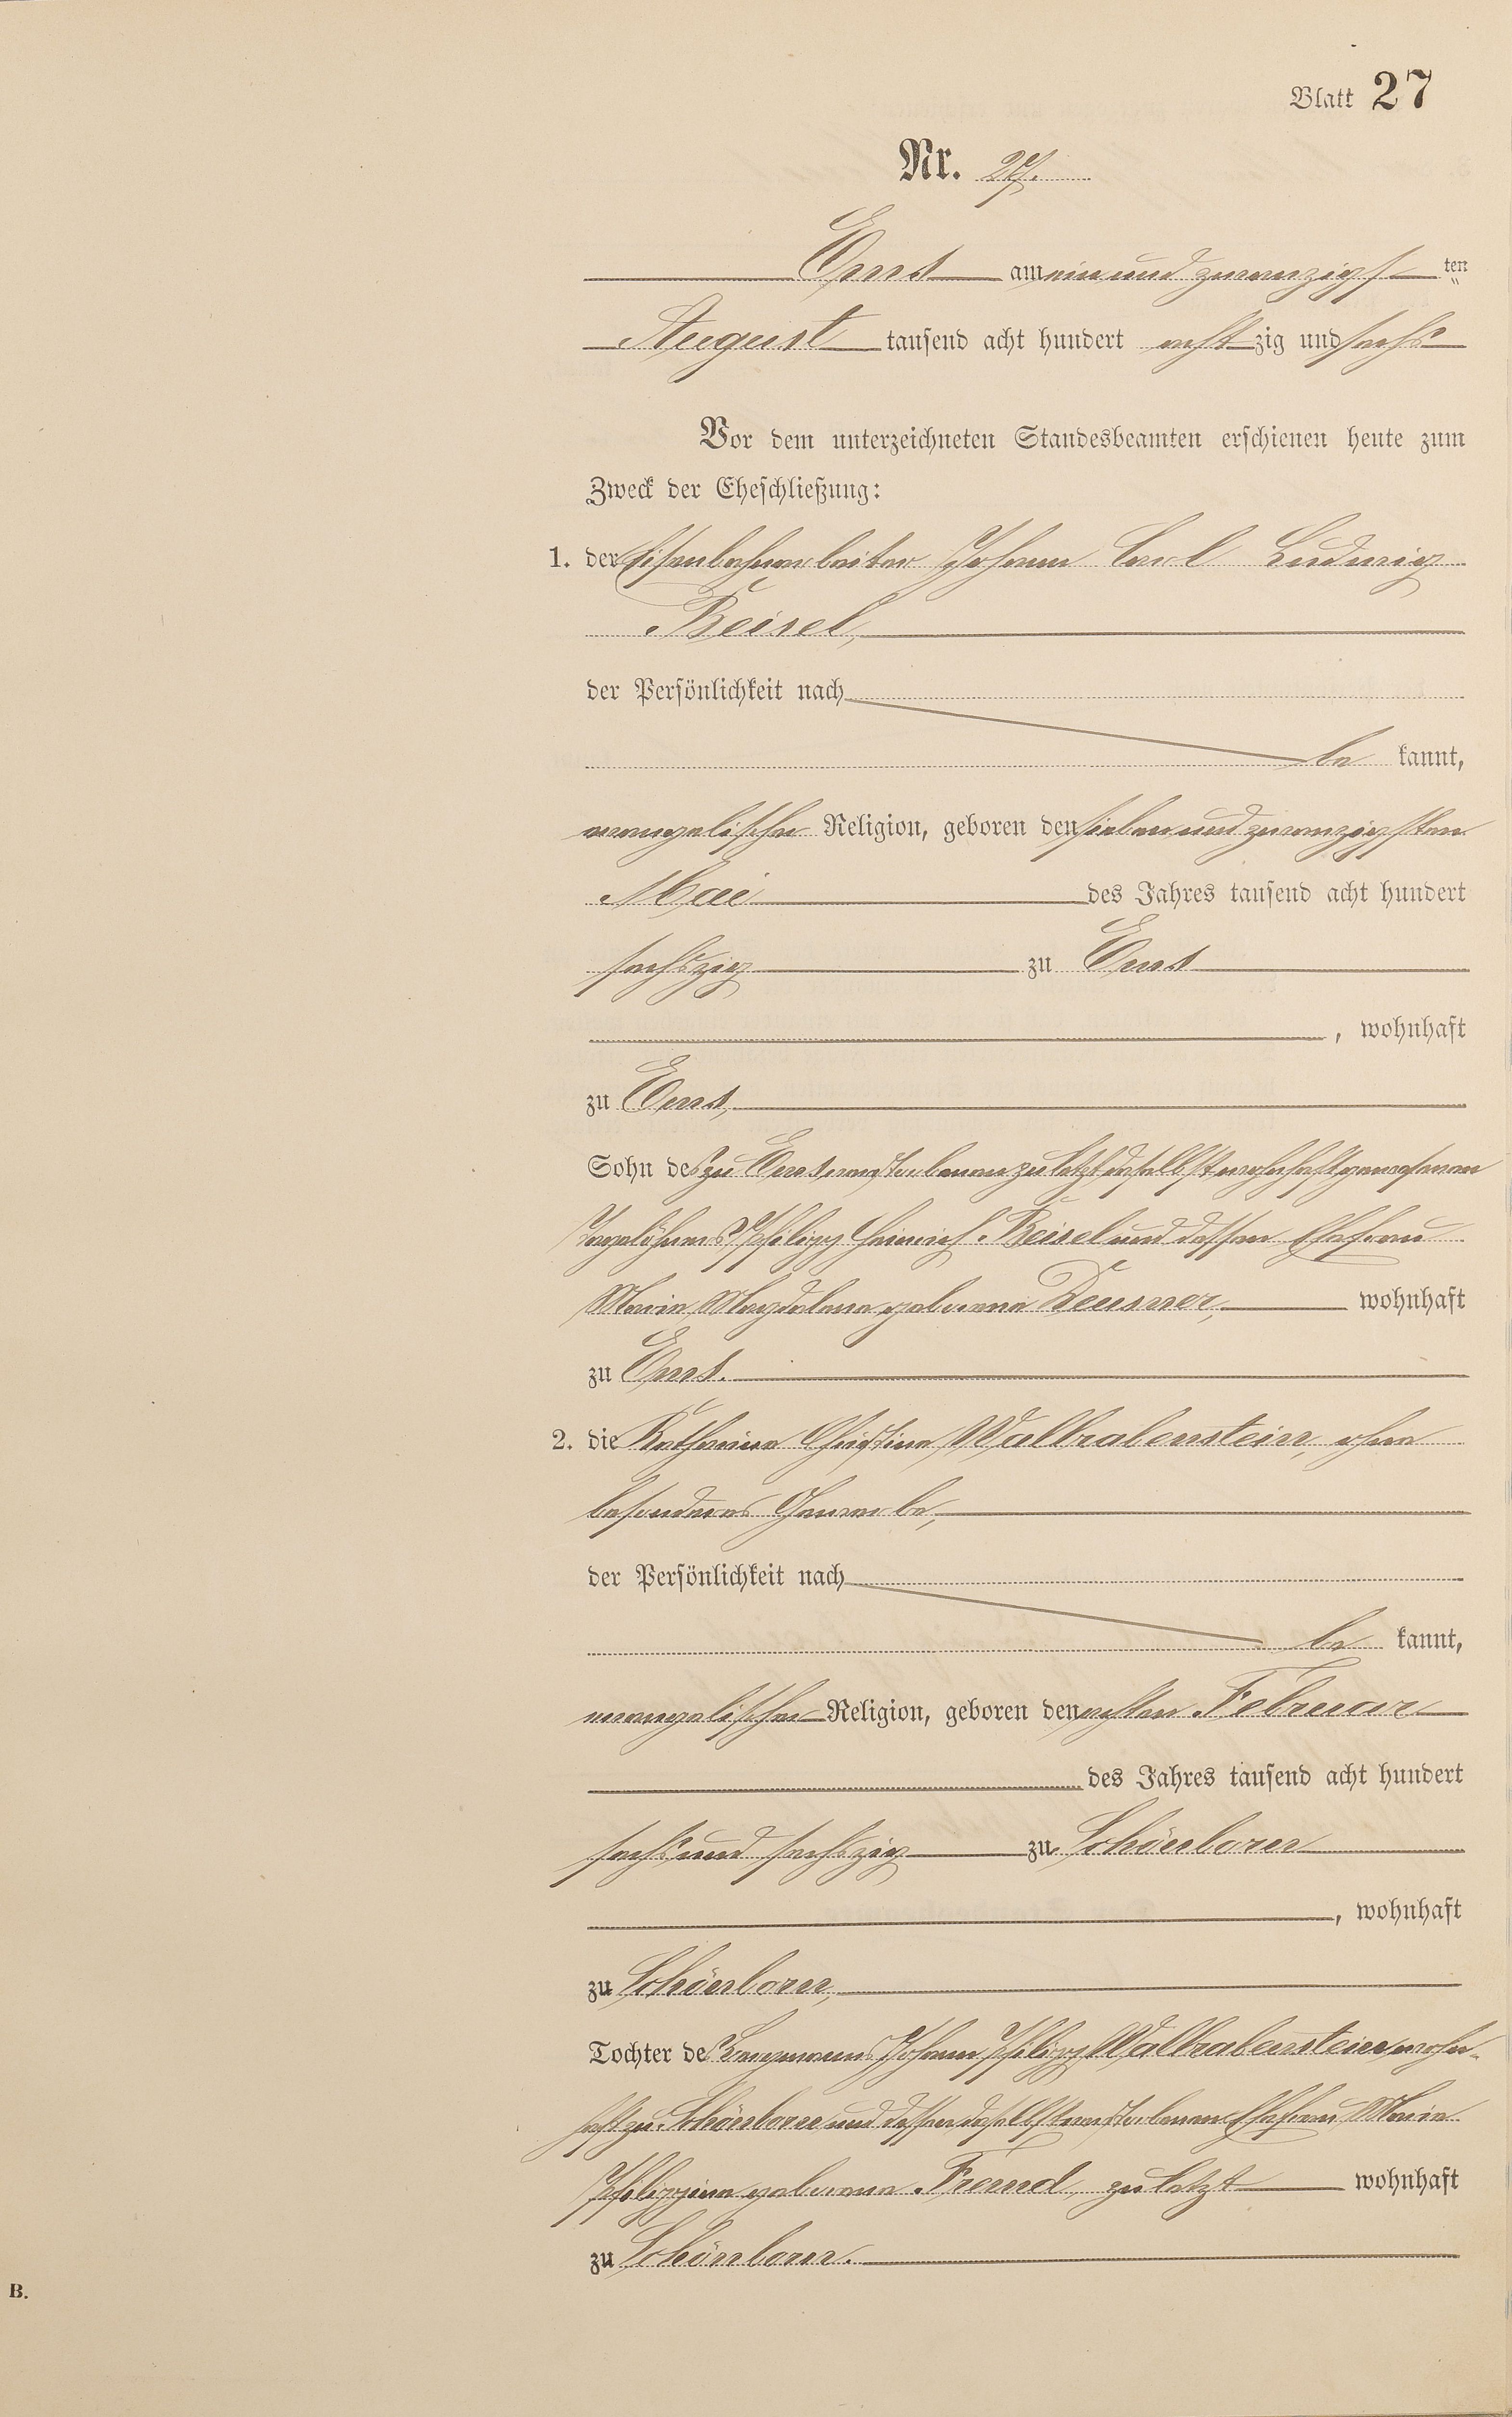 Blatt 27
Nr. 27.
Ems am ein und zwanzigs ten
August tausend acht hundert acht zig und sechs
Vor dem unterzeichneten Standesbeamten erschienen heute zum
Zweck der Eheschließung:
1. der Eisenbahnarbeiter Johann Carl Ludwig
Beisel,
der Persönlichkeit nach
be kannt,
evangelischer Religion, geboren den sieben und zwanzigsten
Mai des Jahres tausend acht hundert
sechszig zu Ems
, wohnhaft
zu Ems,
Sohn des zu Ems verstorbenen zuletzt daselbst wohnhaft gewesenen
Tagelöhners Philipp Heinrich Beisel und dessen Ehefrau
Marie Magdalena geborene Deusner, wohnhaft
zu Ems.
2. die Katharina Christina Walbrabenstein, ohne
besonderes Gewerbe,
der Persönlichkeit nach
be kannt,
evangelischer Religion, geboren den achten Februar
des Jahres tausend acht hundert
sechs und sechszig zu Schönborn
, wohnhaft
zu Schönborn,
Tochter des Bergmanns Johann Philipp Walbrabenstein wohn-
haft zu Schönborn und dessen daselbst verstorbenen Ehefrau Marie
Philippine geborene Fremd, zuletzt wohnhaft
zu Schönborn.
B.